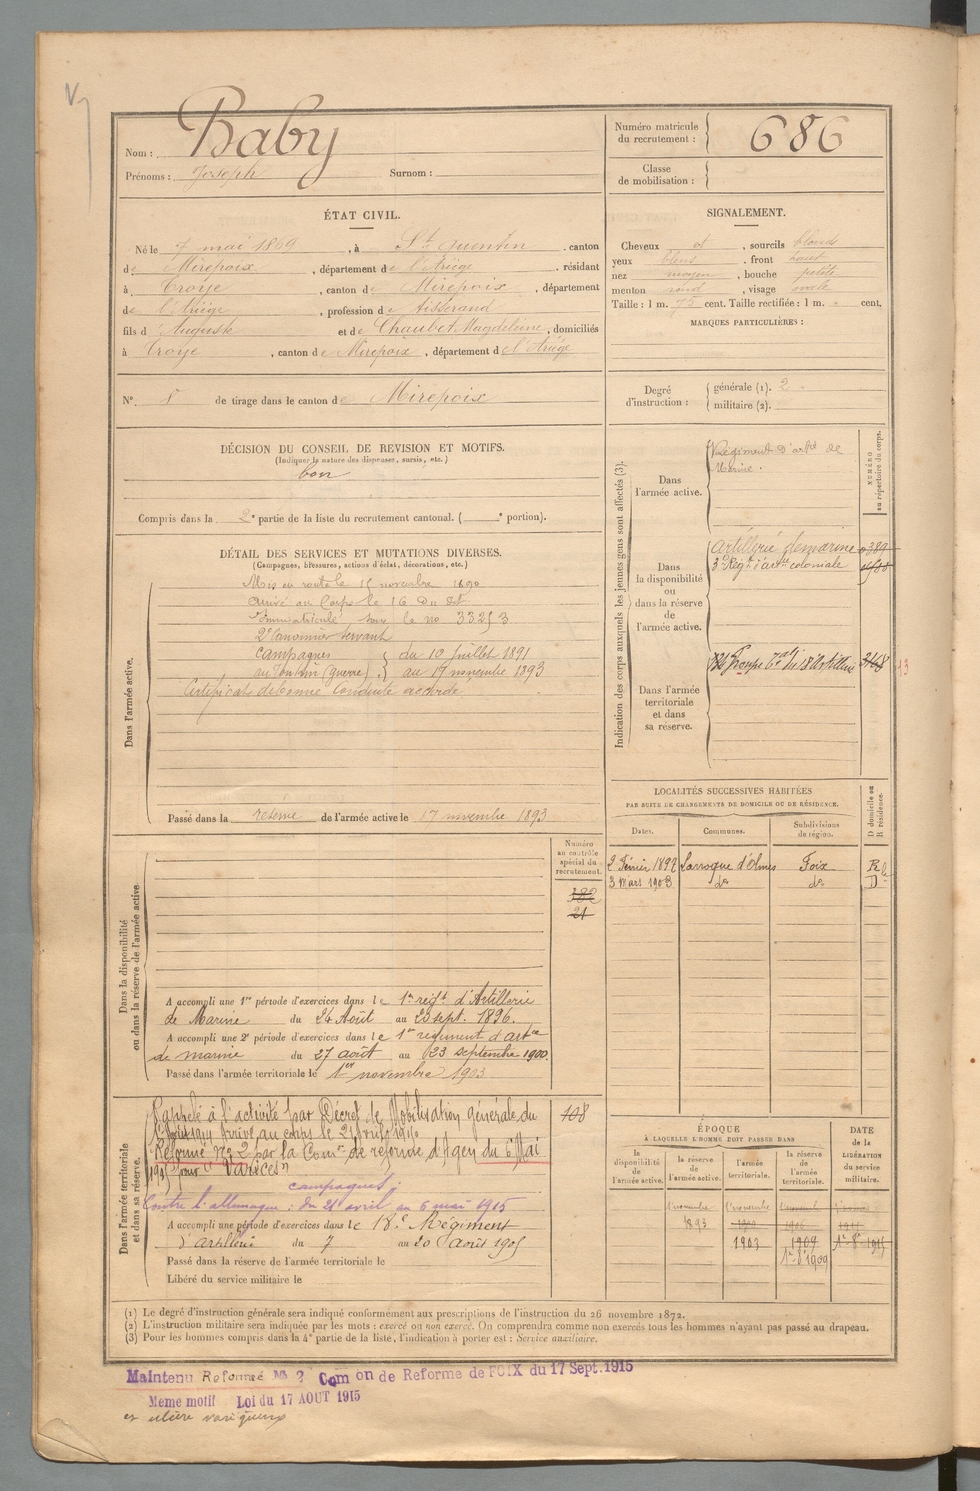 Nom : Baby
Prénoms : Joseph Surnom :
Numéro matricule du recrutement : 686
Classe de mobilisation :
ÉTAT CIVIL.
Né le 7 mai 1869, à St Quentin, canton
de Mirepoix, département de l'Ariège, résidant
à Troye, canton de Mirepoix, département
de l'Ariège, profession de tisserand
fils d'Auguste et de Chaubet Magdeleine, domiciliés
à Troye, canton de Mirepoix, département de l'Ariège
N° 8 de tirage dans le canton de Mirepoix
SIGNALEMENT.
Cheveux et, sourcils blonds
yeux bleus, front haut
nez moyen, bouche petite
menton rond, visage ovale
Taille : 1 m. 75 cent. Taille rectifiée : 1 m. cent.
MARQUES PARTICULIÈRES :
Degré d'instruction : générale (1). 2
militaire (2).
DÉCISION DU CONSEIL DE REVISION ET MOTIFS.
(Indiquer la nature des dispenses, sursis, etc.)
bon
Compris dans la 2e partie de la liste du recrutement cantonal. ( e portion).
DÉTAIL DES SERVICES ET MUTATIONS DIVERSES.
(Campagnes, blessures, actions d'éclat, décorations, etc.)
Dans l'armée active.
Mis en route le 15 novembre 1890
arrivé au Corps le 16 du dit
Immatriculé sous le no 33253
2e Canonnier servant
Campagnes du 10 Juillet 1891
au Tonkin (guerre) au 17 novembre 1893
Certificat de bonne Conduite accordé.
Passé dans la réserve de l'armée active le 17 novembre 1893
Indication des corps auxquels les jeunes gens sont affectés (3).
NUMÉRO au répertoire du corps.
Dans l'armée active.
Régiment d'artie de
Marine.
Dans la disponibilité ou dans la réserve de l'armée active.
Artillerie de marine 389
3e Régt d'artie coloniale
Dans l'armée territoriale et dans sa réserve.
Groupe du 18e Artillerie 2168
13
LOCALITÉS SUCCESSIVES HABITÉES
PAR SUITE DE CHANGEMENTS DE DOMICILE OU DE RÉSIDENCE.
Dates. Communes. Subdivisions de région. D domicile ou R résidence.
2 Février 1897 Laroque d'Olmes Foix R
3 Mars 1903 do do D
Dans la disponibilité ou dans la réserve de l'armée active
Numéro au contrôle spécial du recrutement.
382
21
A accompli une 1re période d'exercices dans le 1er régt d'Artillerie
de Marine du 24 Août au 20 sept. 1896.
A accompli une 2e période d'exercices dans le 1er régiment d'artie
de marine du 27 août au 23 septembre 1900.
Passé dans l'armée territoriale le 1er novembre 1903
Dans l'armée territoriale et dans sa réserve.
108
Rappelé à l'activité par Décret de Mobilisation générale du
1er Août 1914 Arrivé au corps le 21 avril 1915
Réformé no 2 par la Comon de réforme d'Agen du 6 Mai
1915 pour "Varices"
campagnes :
Contre l'allemagne : du 21 avril au 6 mai 1915
A accompli une période d'exercices dans le 18e Régiment
d'artillerie du 7 au 20 Août 1905
Passé dans la réserve de l'armée territoriale le
Libéré du service militaire le
ÉPOQUE
À LAQUELLE L'HOMME DOIT PASSER DANS
la disponibilité de l'armée active. la réserve de l'armée active. l'armée territoriale. la réserve de l'armée territoriale.
DATE de la LIBÉRATION du service militaire.
1893
1903 1909 1915
1er 8bre 1909
(1) Le degré d'instruction générale sera indiqué conformément aux prescriptions de l'instruction du 26 novembre 1872.
(2) L'instruction militaire sera indiquée par les mots : exercé ou non exercé. On comprendra comme non exercés tous les hommes n'ayant pas passé au drapeau.
(3) Pour les hommes compris dans la 4e partie de la liste, l'indication à porter est : Service auxiliaire.
Maintenu Reformé No 2 Com on de Reforme de FOIX du 17 Sept. 1915
Meme motif Loi du 17 AOUT 1915
et ulcère variqueux